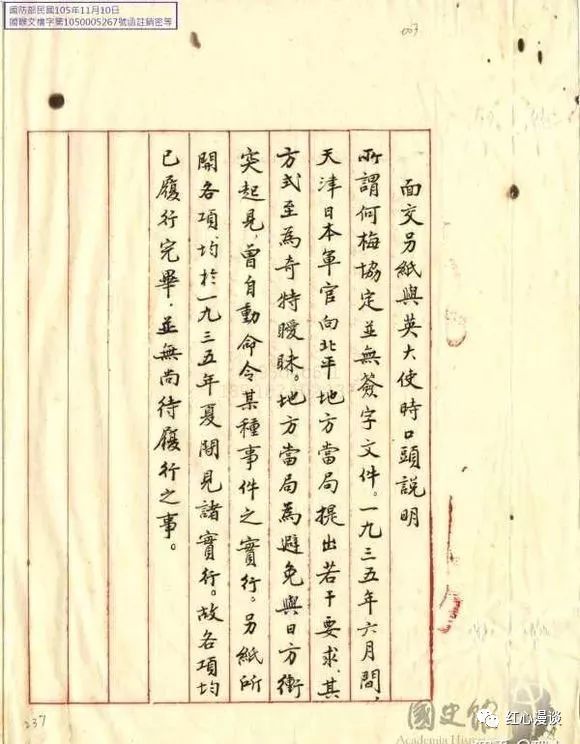 國防部民國105年11月10日
國聯文檔字第1050005267號函註銷密等
003
面交另紙與英大使時口頭說明
所謂何梅協定並無簽字文件。一九三五年六月間，
天津日本軍官向北平地方當局提出若干要求，其
方式至為奇特曖昧。地方當局為避免與日方衝
突起見，曾自動命令某種事件之實行。另紙所
開各項，均於一九三五年夏間見諸實行。故各項均
已履行完畢，並無尚待履行之事。
237
國史館
Academia Historica
红心漫谈